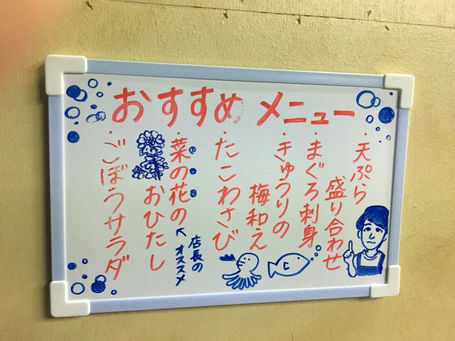 おすすめ メニュー
・天ぷら
盛り合わせ
・まぐろ刺身
・きゅうりの
梅和え
・たこわさび
・菜の花の
おひたし
↖オススメ
店長の
・ごぼうサラダ